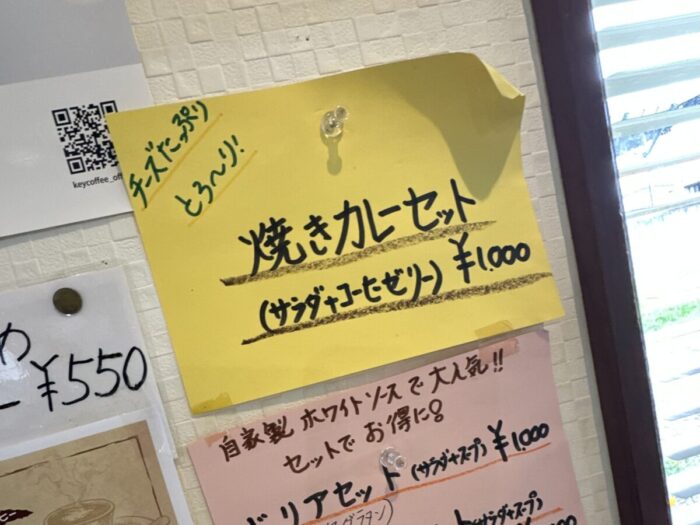 keycoffee_off
チーズたっぷり
とろ〜り!
焼きカレーセット
(サラダ+コーヒーゼリー) ¥1.000
¥550
自家製 ホワイトソースで大人気!!
セットで お得に♪
ドリアセット (サラダ+スープ) ¥1,000
(サラダ+スープ)